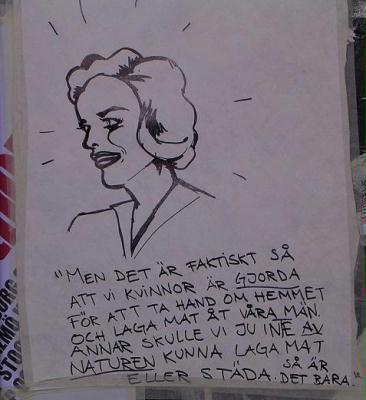 "MEN DET ÄR FAKTISKT SÅ
ATT VI KVINNOR ÄR GJORDA
FÖR ATT TA HAND OM HEMMET
OCH LAGA MAT ÅT VÅRA MÄN.
ANNAR SKULLE VI JU INE AV
NATUREN KUNNA LAGA MAT
ELLER STÄDA. SÅ ÄR
DET BARA."